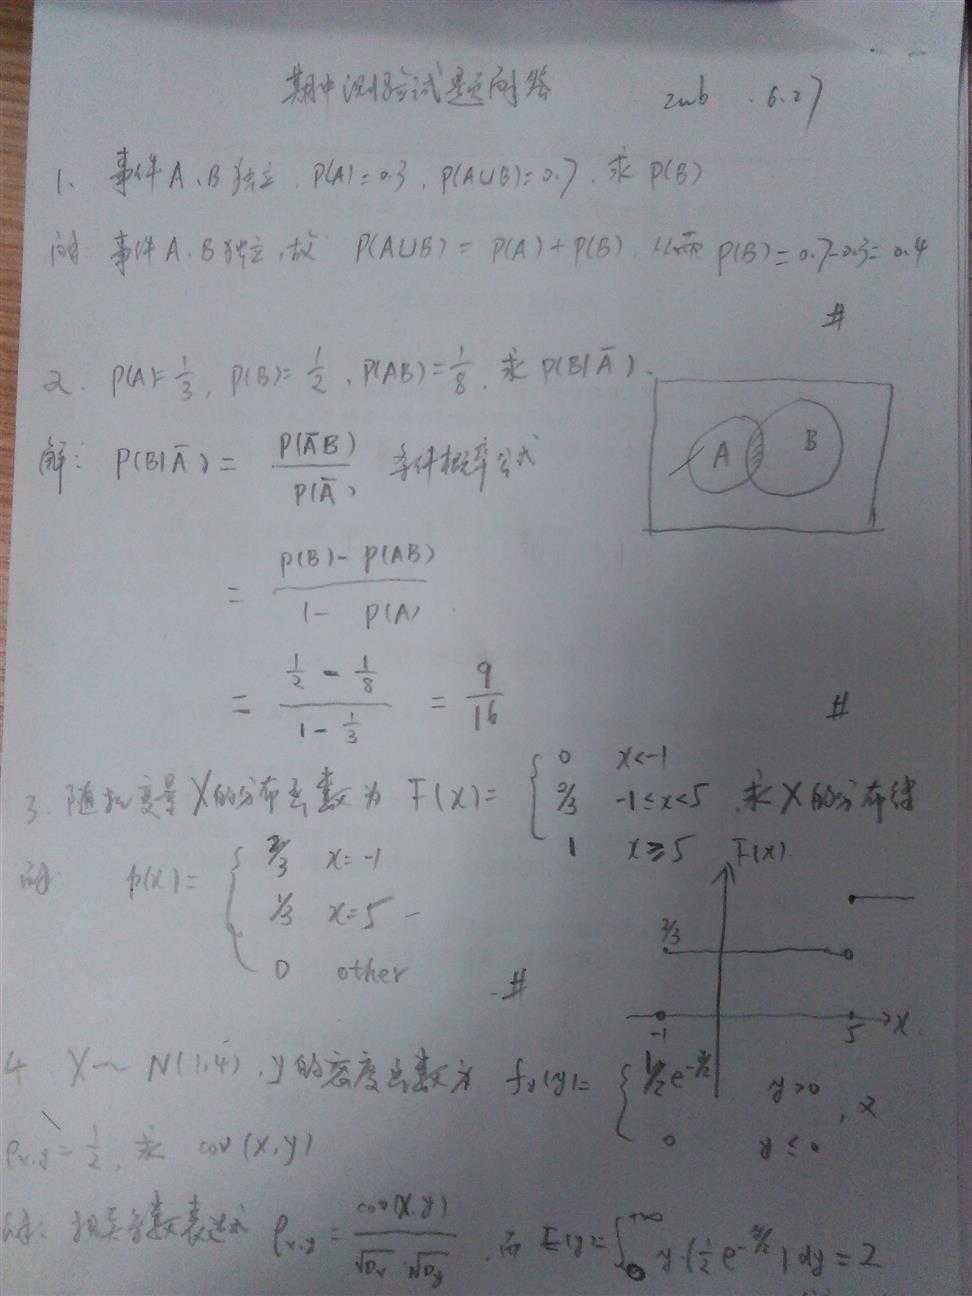 期中测验试题问答 2016.6.27
1、事件A、B独立,P(A)=0.3,P(A∪B)=0.7,求P(B)
解:事件A、B独立,故 P(A∪B)=P(A)+P(B),从而P(B)=0.7-0.3=0.4
#
2. P(A)=1/3, P(B)=1/2, P(AB)=1/8, 求 P(B|Ā).
解: P(B|Ā) = P(ĀB)/P(Ā) 条件概率公式
A B
= (P(B)-P(AB))/(1-P(A))
= (1/2 - 1/8)/(1 - 1/3) = 9/16 #
3. 随机变量X的分布函数为 F(x)= { 0 x<-1
2/3 -1≤x<5 求X的分布律
1 x≥5
解: p(x)= { 2/3 x=-1
1/3 x=5
0 other
#
F(x)
2/3
-1 5 x
4 X~N(1,4), y的密度函数为 fy(y)= { 1/2 e^{-y/2} y>0
0 y≤0 , 又
ρx,y=1/2, 求 cov(x,y)
解: 相关系数表达式 ρx,y = cov(x,y)/(√Dx·√Dy), 而 Ey=∫₀^{+∞} y·(1/2 e^{-y/2})dy=2